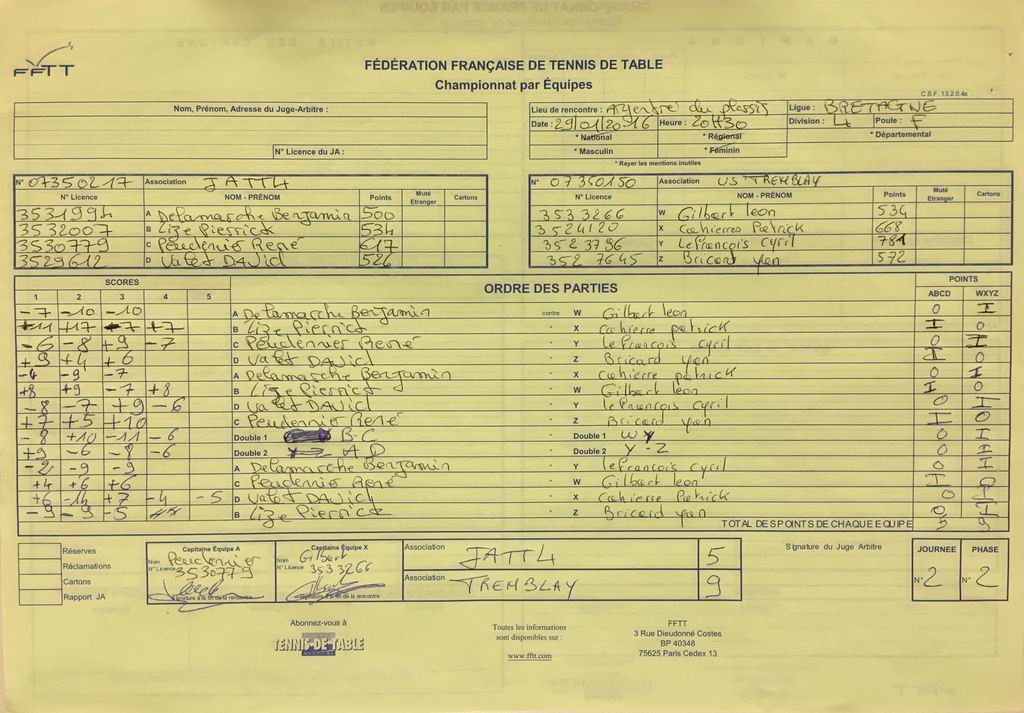 FFTT
FÉDÉRATION FRANÇAISE DE TENNIS DE TABLE
Championnat par Équipes
C.S.F. 13.2.0.4a
Nom, Prénom, Adresse du Juge-Arbitre :
N° Licence du JA :
Lieu de rencontre : Argentré du plessis Ligue : BRETAGNE
Date : 29/01/2016 Heure : 20H30 Division : 4 Poule : F
* National * Régional * Départemental
* Masculin * Féminin
* Rayer les mentions inutiles
N° 07350217 Association JATT4
N° Licence NOM - PRÉNOM Points Muté Etranger Cartons
3531994 A Delamarche Benjamin 500
3532007 B Lize Pierrick 534
3530779 C Peudenier René 617
3529612 D Valet DAVID 526
N° 07350150 Association US TREMBLAY
N° Licence NOM - PRÉNOM Points Muté Etranger Cartons
3533266 W Gilbert leon 534
3524120 X Cahierre Patrick 668
3523796 Y Lefrançois Cyril 781
3527645 Z Bricard yan 572
SCORES ORDRE DES PARTIES POINTS
1 2 3 4 5 ABCD WXYZ
-7 -10 -10 A Delamarche Benjamin contre W Gilbert leon 0 I
+11 +17 -7 +7 B Lize Pierrick X Cahierre patrick I 0
-6 -8 +9 -7 C Peudennier René Y lefrançois cyril 0 I
+9 +4 +6 D Valet DAVID Z Bricard yan I 0
-4 -9 -7 A Delamarche Benjamin X Cahierre patrick 0 I
+8 +9 -7 +8 B Lize Pierrick W Gilbert leon I 0
-8 -7 +9 -6 D Valet DAVID Y lefrançois Cyril 0 I
+7 +5 +10 C Peudennier René Z Bricard yan I 0
-8 +10 -11 -6 Double 1 B-C Double 1 W 0 I
+9 -6 -8 -6 Double 2 A D Double 2 Y-Z 0 I
-2 -9 -9 A Delamarche Benjamin Y lefrancois cyril 0 I
+4 +6 +6 C Peudennier René W Gilbert leon I
+6 -14 +7 -4 -5 D Valet DAVID X Cahierre Patrick 0 I
-9 -9 -5 B Lize Pierrick Z Bricard yan 0 I
TOTAL DES POINTS DE CHAQUE EQUIPE 5 9
Réserves
Réclamations
Cartons
Rapport JA
Capitaine Équipe A
Nom Peudennier
N° Licence 3530779
Signature à la fin de la rencontre
Capitaine Équipe X
Nom Gilbert
N° Licence 3533266
Signature à la fin de la rencontre
Association JATT4 5
Association TREMBLAY 9
Signature du Juge Arbitre
JOURNEE PHASE
N° 2 N° 2
Abonnez-vous à
TENNIS DE TABLE
Toutes les informations
sont disponibles sur :
www.fftt.com
FFTT
3 Rue Dieudonné Costes
BP 40348
75625 Paris Cedex 13